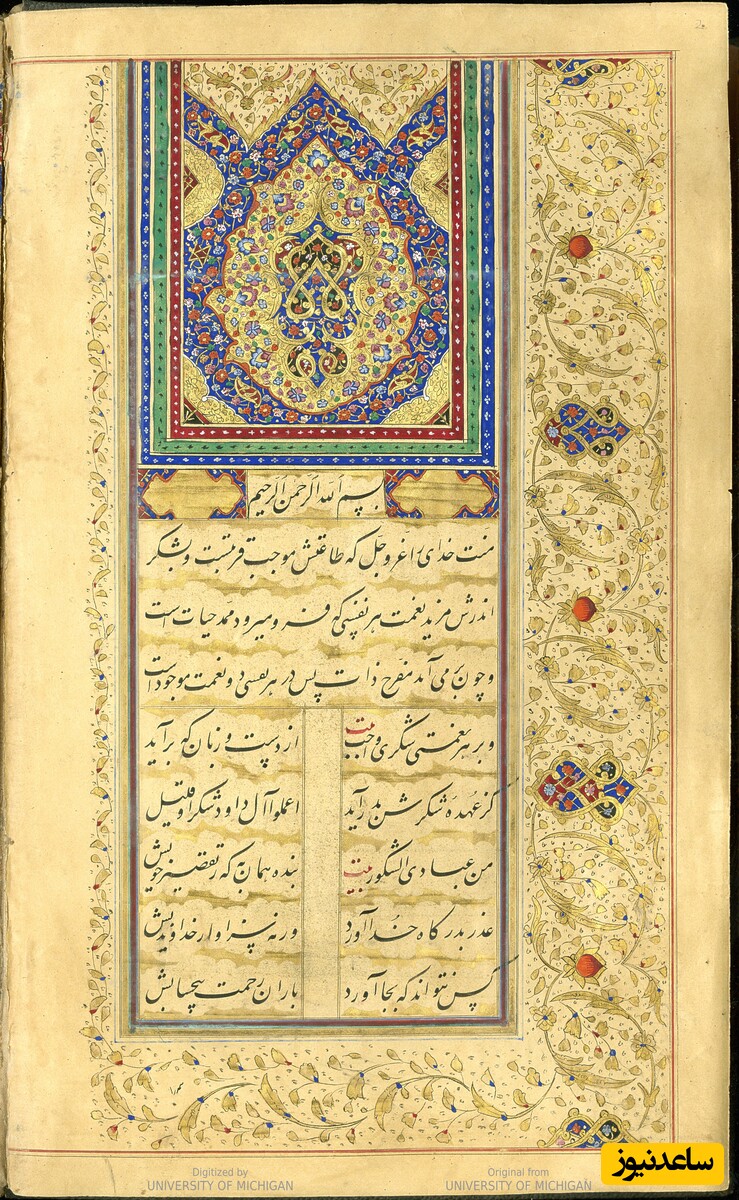 بسم الله الرحمن الرحیم
منت خدای را عز و جل که طاعتش موجب قربتست و بشکر
اندرش مزید نعمت هر نفسی که فرو میرود ممد حیات است
و چون بر می آید مفرح ذات پس در هر نفسی دو نعمت موجود است
و بر هر نعمتی شکری واجب بیت از دست و زبان که برآید
کز عهده شکرش بدر آید اعملوا آل داود شکرا و قلیل
من عبادی الشکور بیت بنده همان به که ز تقصیر خویش
عذر بدرگاه خدا آورد ورنه سزاوار خداوندیش
کس نتواند که بجا آورد باران رحمت بیحسابش
Digitized by
UNIVERSITY OF MICHIGAN
Original from
UNIVERSITY OF MICHIGAN
ساعدنیوز